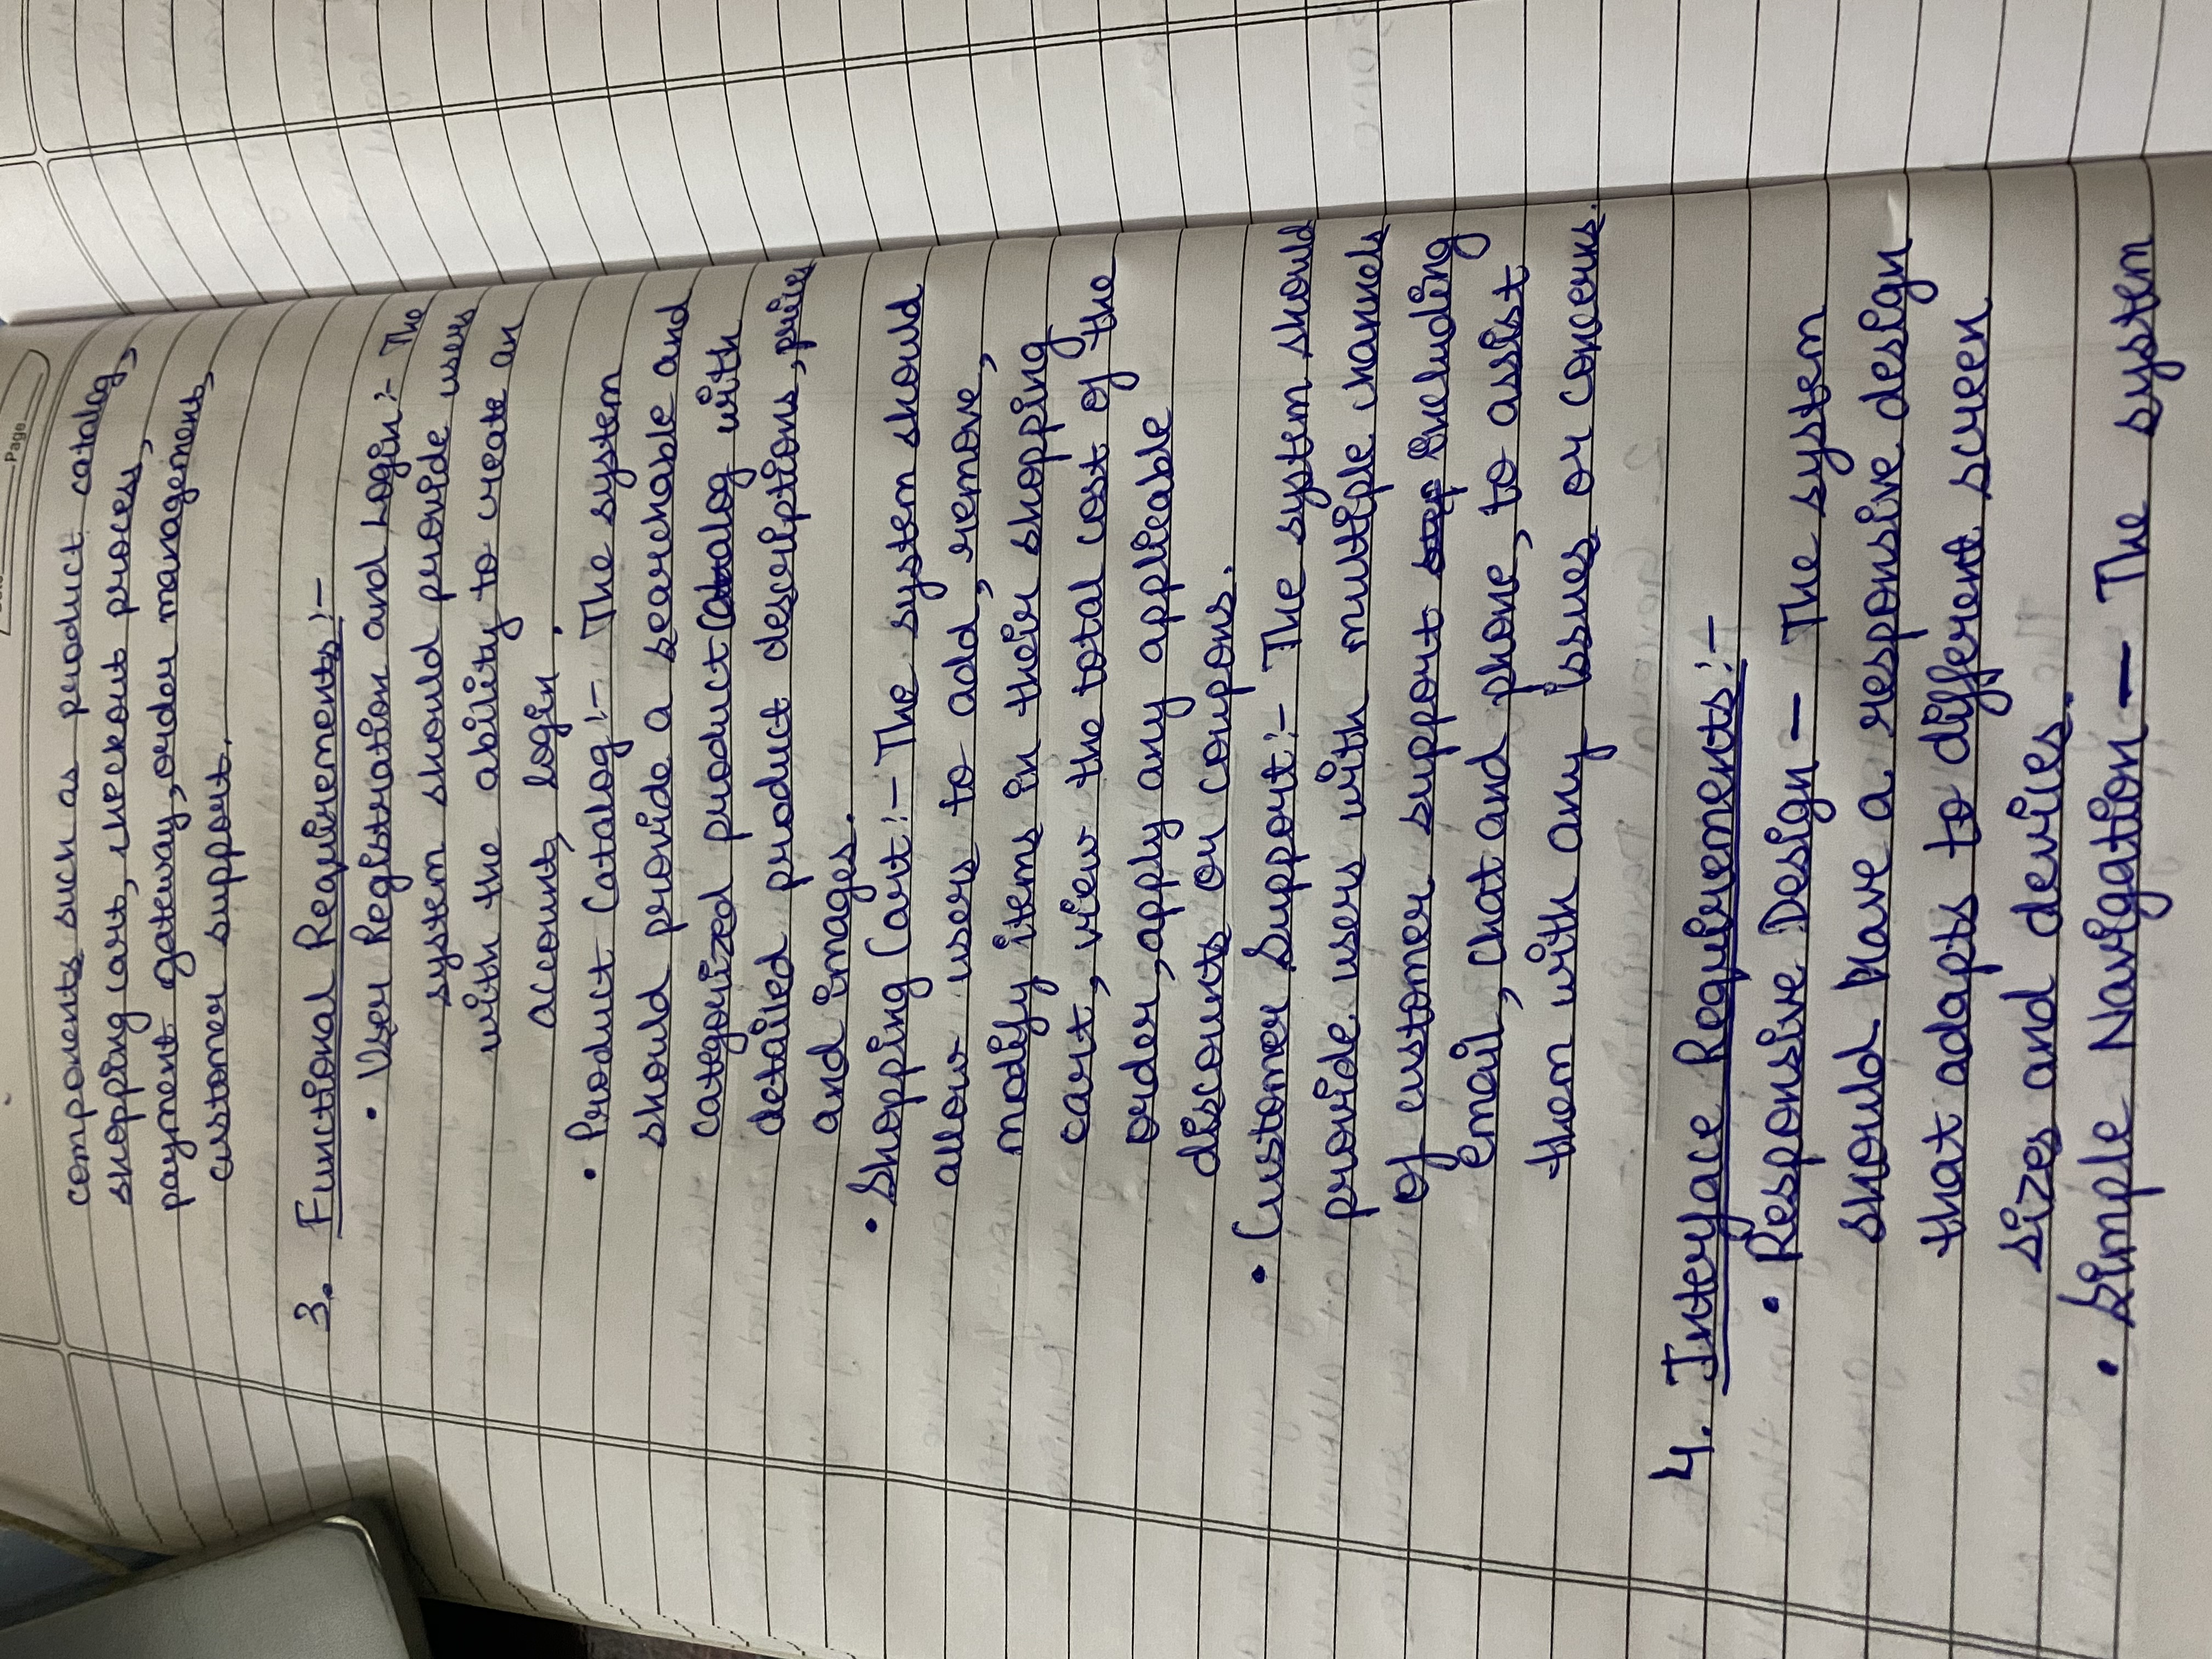 Page
components such as product catalog,
shopping cart, checkout process,
payment gateway, order management,
customer support.
3. Functional Requirements :-
• User Registration and Login :- The
system should provide users
with the ability to create an
account, login .
• Product Catalog :- The system
should provide a searchable and
categorized product Catalog with
detailed product descriptions, prices
and images.
• Shopping Cart :- The system should
allow users to add, remove,
modify items in their shopping
cart, view the total cost of the
order, apply any applicable
discounts or coupons.
• Customer Support :- The system should
provide users with multiple channels
of customer support including
email, chat and phone, to assist
them with any issues or concerns.
4. Interface Requirements :-
• Responsive Design — The system
should have a responsive design
that adapts to different screen
sizes and devices.
• Simple Navigation — The system